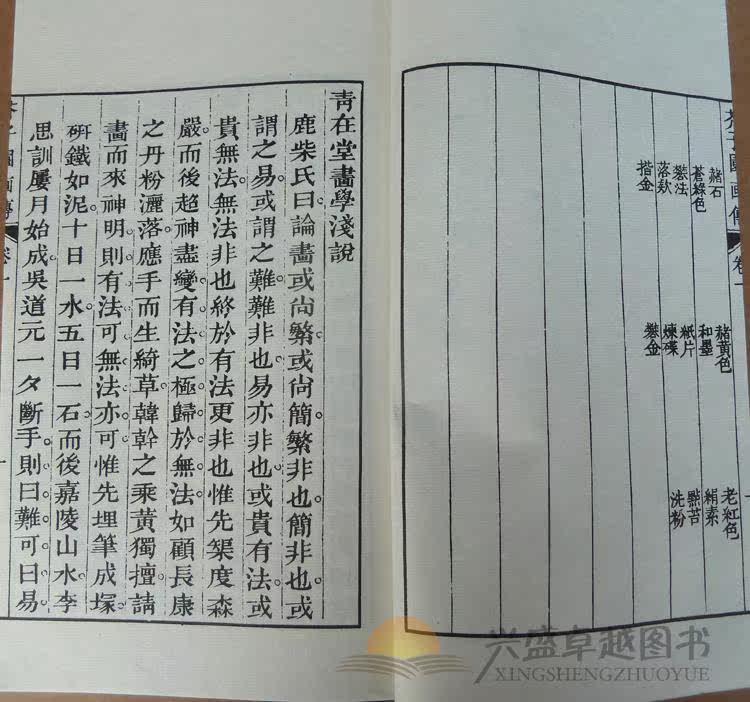 芥子園畫傳 卷一
赭石 赭黃色 老紅色
蒼綠色 和墨 絹素
礬法 紙片 點苔
落款 煉碟 洗粉
揩金 礬金
靑在堂畵學淺說
鹿柴氏曰論畵或尚繁或尚簡。繁非也簡非也。或
謂之易。或謂之難。難非也易亦非也。或貴有法。或
貴無法。無法非也終於有法更非也惟先榘度森
嚴。而後超神盡變。有法之極歸於無法。如顧長康
之丹粉灑落。應手而生綺草。韓幹之乘黃獨擅。請
畵而來神明。則有法可。無法亦可。惟先埋筆成塚。
硏鐵如泥。十日一水。五日一石。而後嘉陵山水。李
思訓屢月始成。吳道元一夕斷手。則曰難可。曰易
芥子園畫傳 卷一